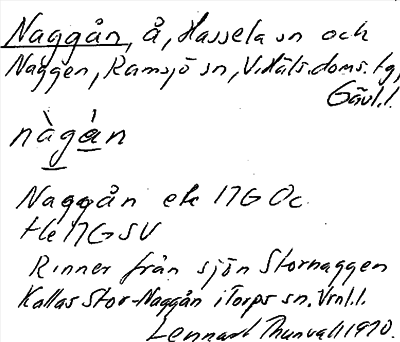 Naggån, å, Hassela sn och
Naggen, Ramsjö sn, V. Häls. doms. tg,
Gävl. l.
nàgán
Naggån ek 17G Oc
hle 17G SV
Rinner från sjön Stornaggen
Kallas Stor-Naggån i Torps sn. Vrnl. l.
Lennart Thunvall 1970.